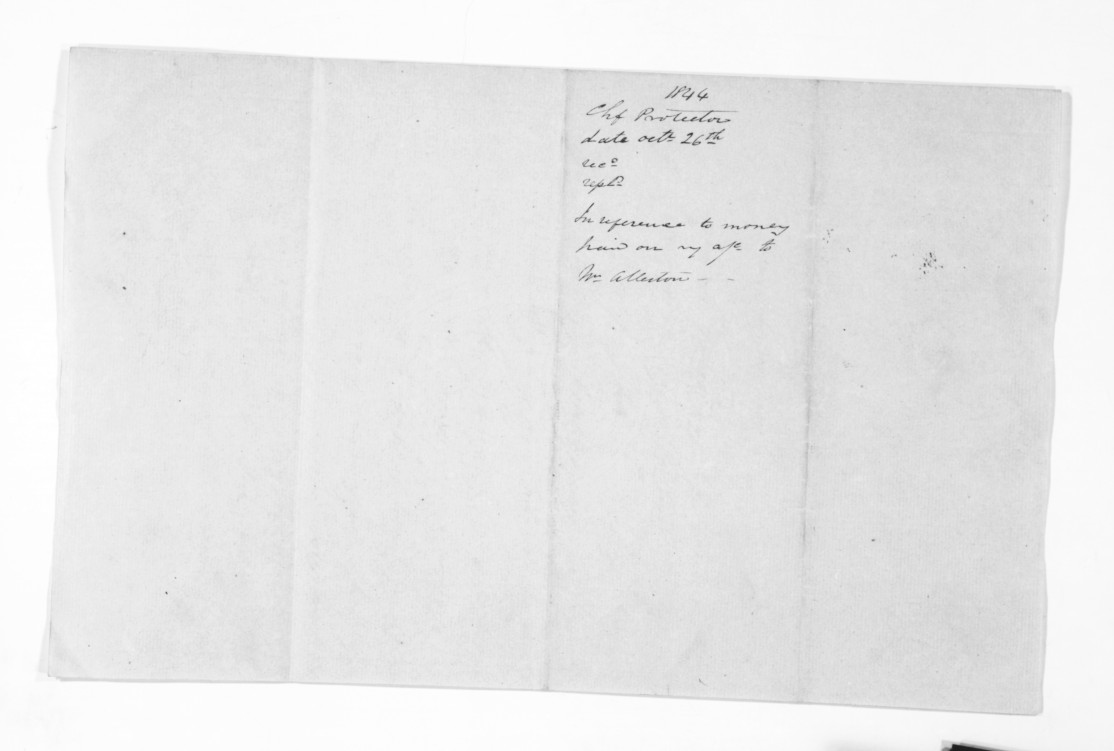 1844
Chf Protector
date octr 26th
recd
repld
In reference to money
paid on my a/c to
Mr Allerton - -